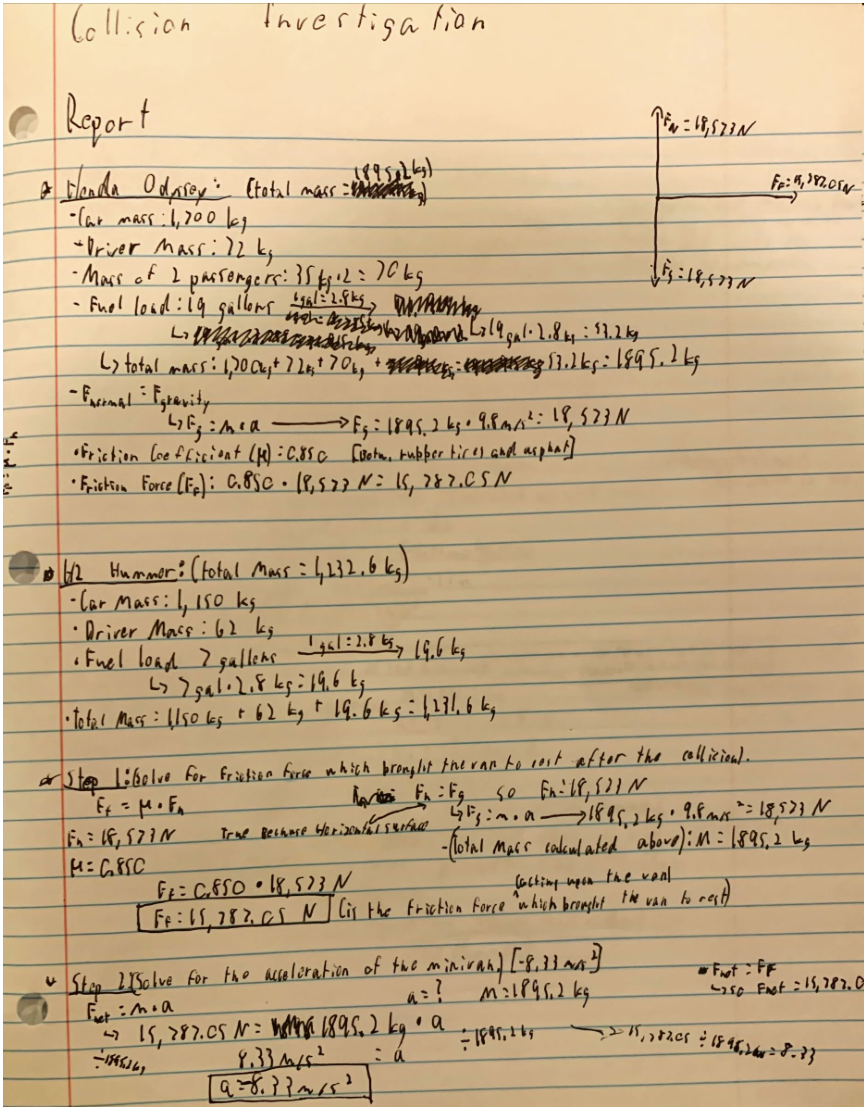 Collision Investigation
Report
F_N = 18,573 N
F_F: 15,787.05 N
F_g = 18,573 N
Honda Odyssey: (total mass = 1895.2 kg)
- Car mass: 1,700 kg
- Driver Mass: 72 kg
- Mass of 2 passengers: 35 kg · 2 = 70 kg
- Fuel load: 19 gallons 1 gal = 2.8 kg →
↳ 19 gal · 2.8 kg = 53.2 kg
↳ total mass: 1,700 kg + 72 kg + 70 kg + 53.2 kg = 1895.2 kg
- F normal = F gravity
↳ F_g = m · a → F_g = 1895.2 kg · 9.8 m/s² = 18,573 N
· Friction Coefficient (μ) = 0.850 [Betw. rubber tires and asphalt]
· Friction Force (F_F): 0.850 · 18,573 N = 15,787.05 N
μ · F_n
H2 Hummer: (total Mass = 1,232.6 kg)
- Car Mass: 1,150 kg
· Driver Mass: 62 kg
· Fuel load 7 gallons 1 gal = 2.8 kg → 19.6 kg
↳ 7 gal · 2.8 kg = 19.6 kg
· total Mass = 1,150 kg + 62 kg + 19.6 kg = 1,231.6 kg
Step 1: (Solve for Friction Force which brought the van to rest after the collision).
F_f = μ · F_n F_n = F_g so F_n = 18,573 N
F_n = 18,573 N True Because Horizontal surface ↳ F_g = m · a → 1895.2 kg · 9.8 m/s² = 18,573 N
μ = 0.850 - (total Mass calculated above): M = 1895.2 kg
F_f = 0.850 · 18,573 N (acting upon the van)
F_F = 15,787.05 N (is the Friction Force ^ which brought the van to rest)
Step 2: (Solve for the acceleration of the minivan) [-8.33 m/s²]
F_net = m · a a = ? M = 1895.2 kg F_net = F_F
↳ 15,787.05 N = 1895.2 kg · a ↳ so F_net = 15,787.0
÷ 1895.2 kg 8.33 m/s² = a ÷ 1895.2 kg → 15,787.05 ÷ 1895.2 kg = 8.33
a = -8.33 m/s²